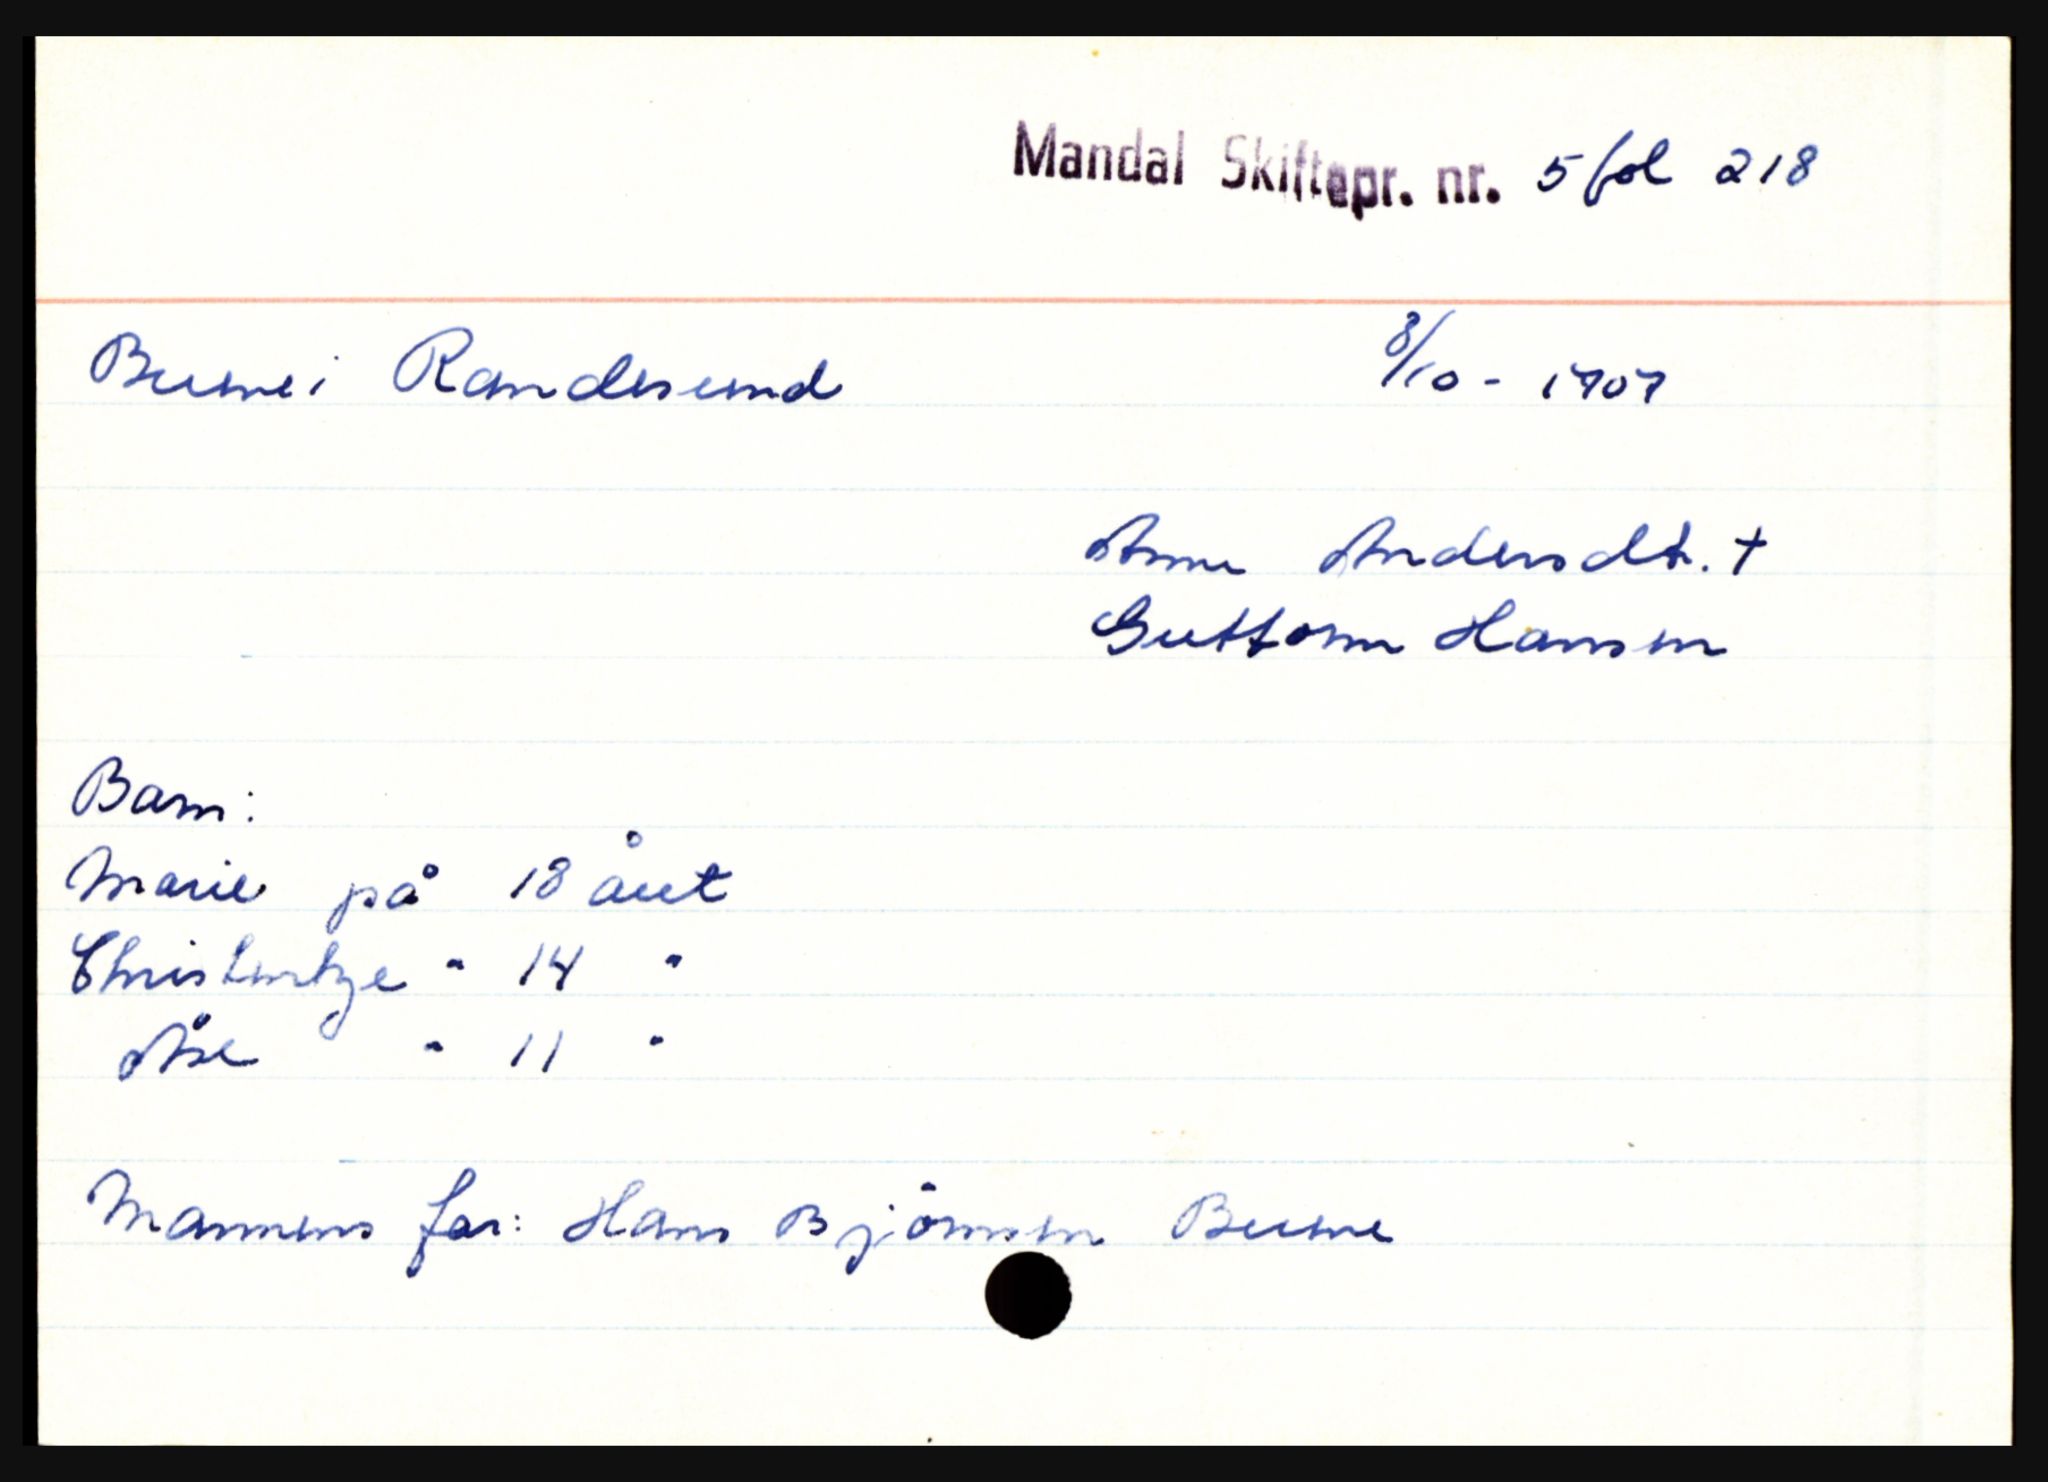 Mandal Skiftepr. nr. 5 fol 218
Buene i Randesund 8/10 - 1707
Anne Andersdtr. †
Guttorm Hansen
Barn:
Marie på 18 året
Christentze " 14 "
Åse " 11 "
Mannens far: Hans Bjørnsen Buene